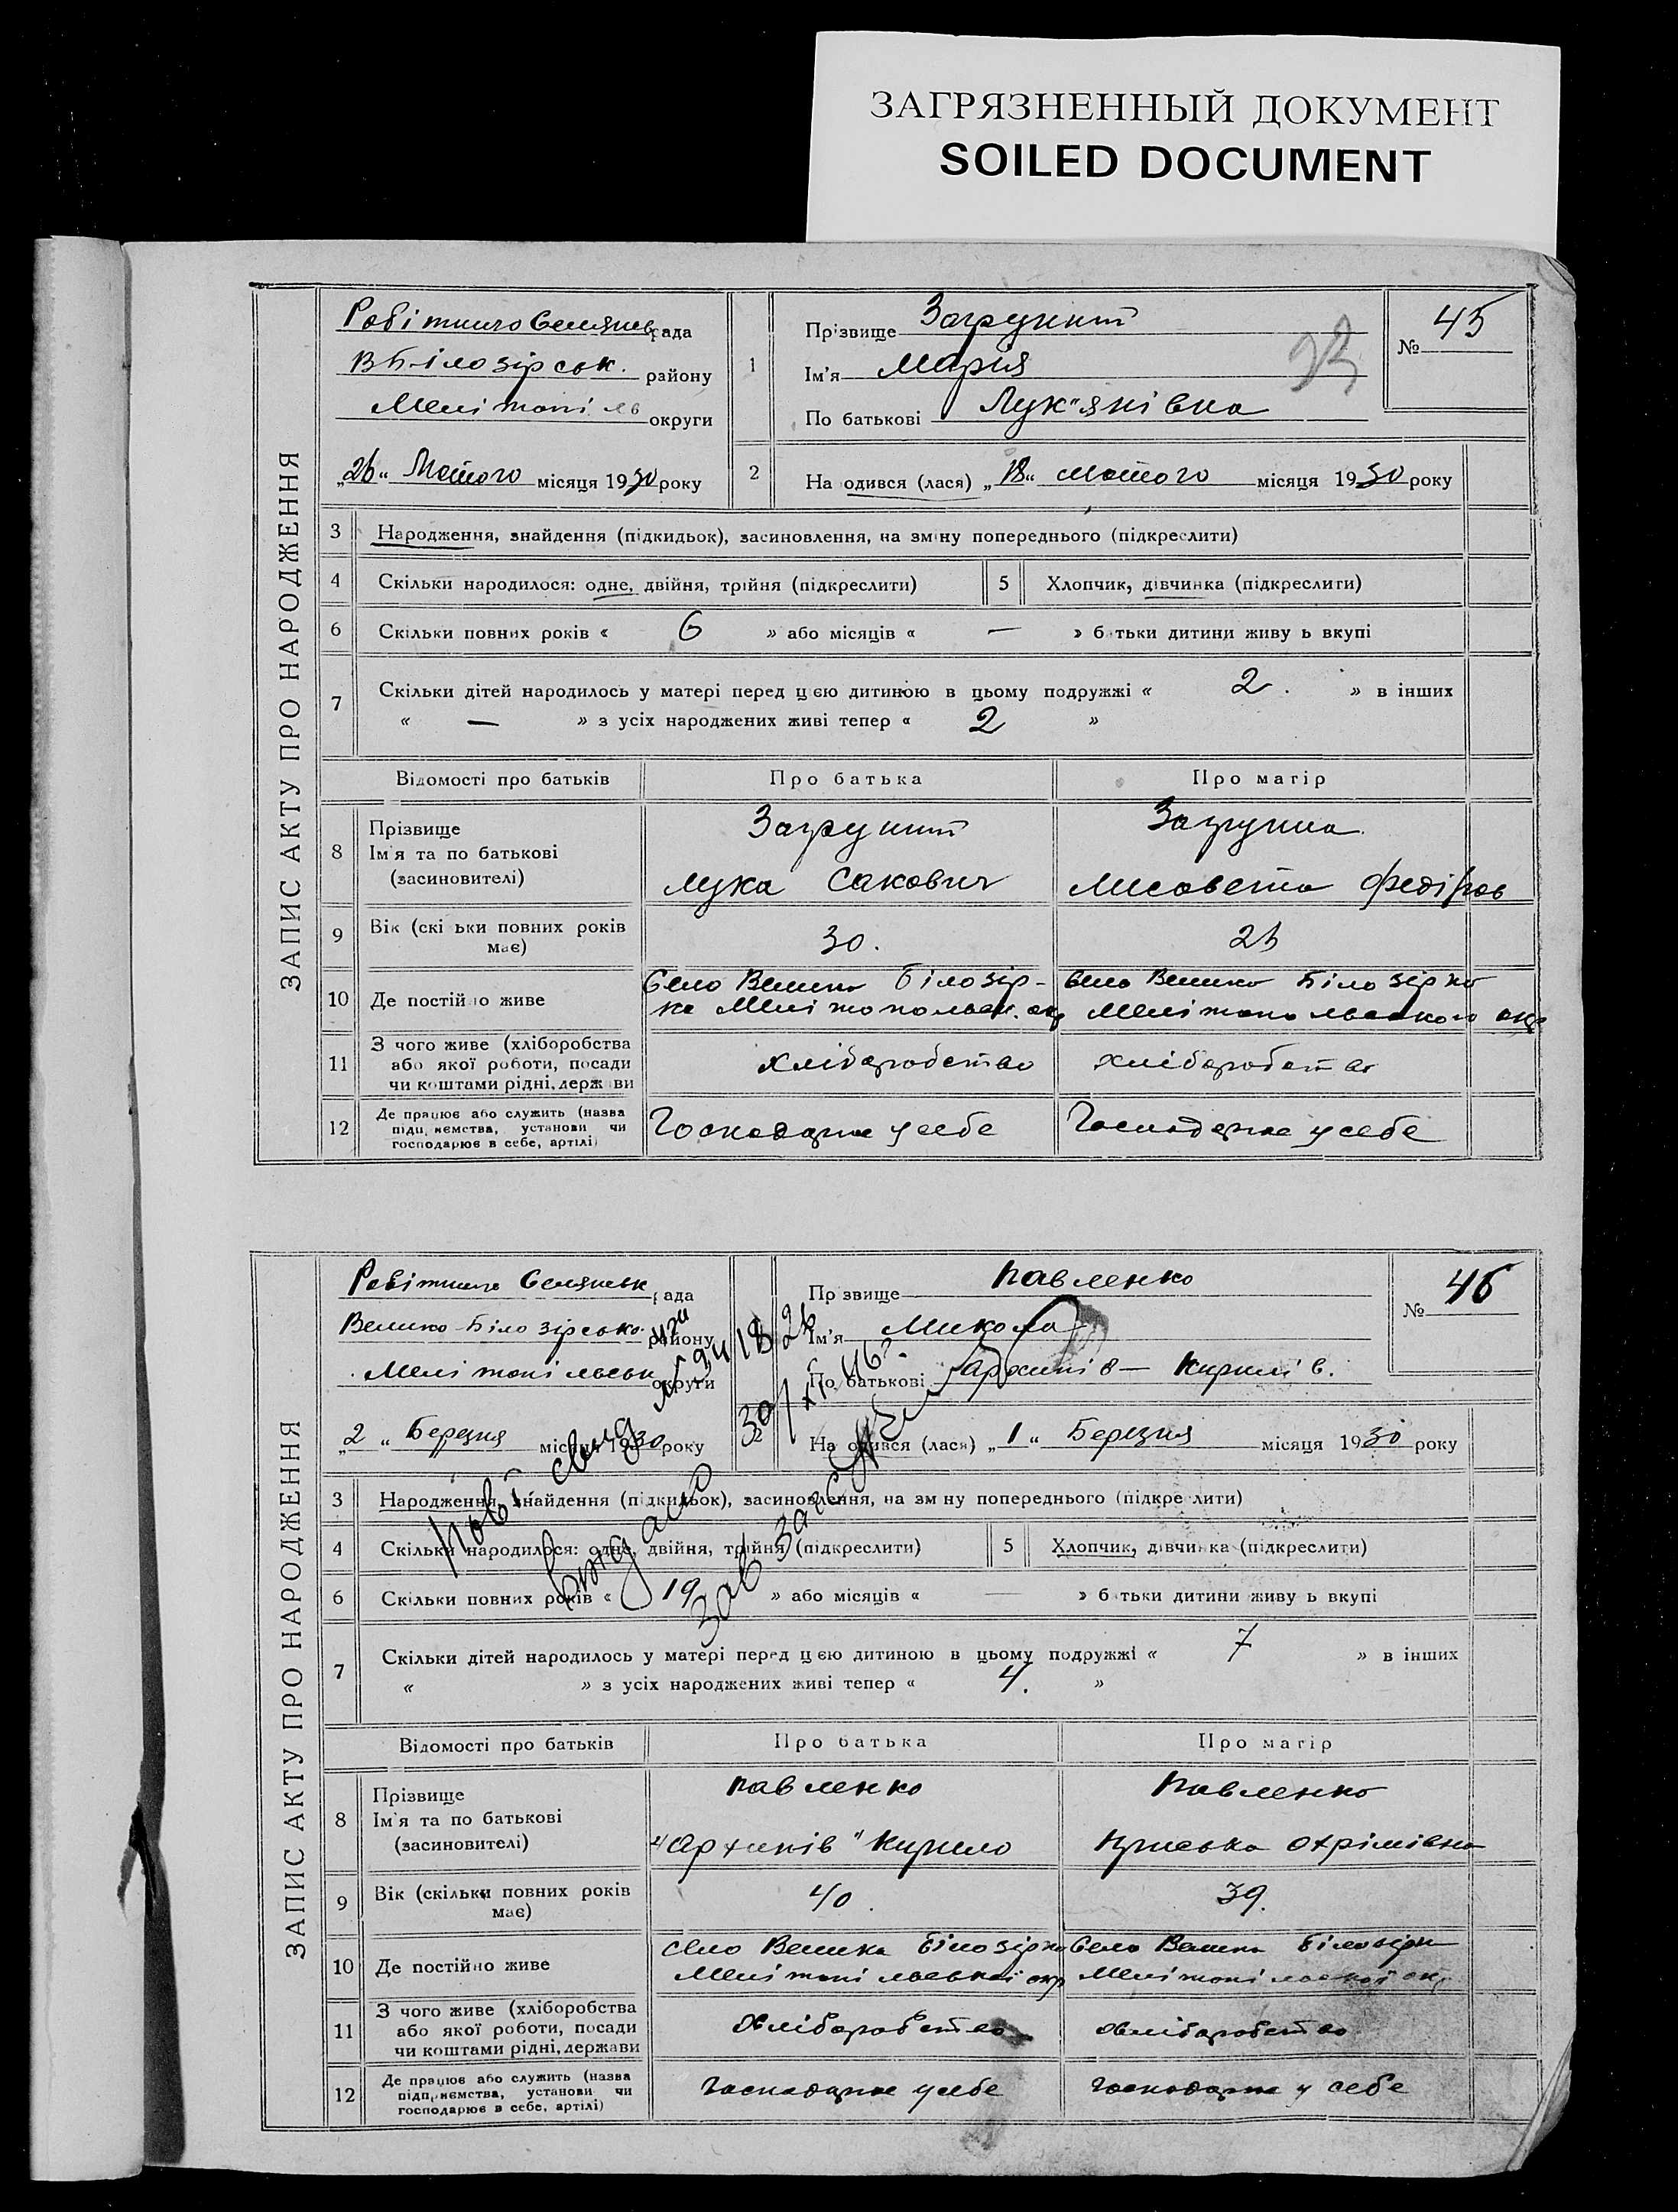 ЗАГРЯЗНЕННЫЙ ДОКУМЕНТ
SOILED DOCUMENT
ЗАПИС АКТУ ПРО НАРОДЖЕННЯ
рада
В Білозірськ. району
Мелітопільв округи
„26“ Лютого місяця 1930 року
1
Прізвище Загрунит
Ім'я Мария
По батькові Лук"янівна
№ 45
2
На одився (лася) „18“ Лютого місяця 1930 року
3 Народження, знайдення (підкидьок), засиновлення, на зміну попереднього (підкреслити)
4 Скільки народилося: одне, двійня, трійня (підкреслити) 5 Хлопчик, дівчинка (підкреслити)
6 Скільки повних років « 6 » або місяців « — » б тьки дитини живу ь вкупі
7 Скільки дітей народилось у матері перед цією дитиною в цьому подружжі « 2. » в інших
« — » з усіх народжених живі тепер « 2 »
Відомості про батьків Про батька Про матір
8 Прізвище Загрунит
Ім'я та по батькові
(засиновителі) Лука Сакович Лисавета Федіров
9 Вік (скі ьки повних років
має) 30.
10 Де постійно живе Село Велика Білозір- Село Велико Білозірка
ка Мелітопольськ. окр Мелітопольського окр
11 З чого живе (хліборобства
або якої роботи, посади
чи коштами рідні, держ ви хліборобство хліборобство
12 Де працює або служить (назва
підп иємства, установи чи
господарює в себе, артілі) Господарює у себе Господарює у себе
ЗАПИС АКТУ ПРО НАРОДЖЕННЯ
рада
Велико-Білозірсько району
Мелітопільськ округи
„2“ Березня місяця 1930 року
Пр звище Павленко
Ім'я Микола
По батькові Архипів — Кирилів.
№ 46
2
На одився (лася) „1“ Березня місяця 1930 року
3 Народження, знайдення (підкидьок), засиновлення, на зм ну попереднього (підкре лити)
4 Скільки народилося: одне, двійня, трійня (підкреслити) 5 Хлопчик, дівчинка (підкреслити)
6 Скільки повних років « 19 » або місяців « — » б тьки дитини живу ь вкупі
7 Скільки дітей народилось у матері перед цією дитиною в цьому подружжі « 7 » в інших
« » з усіх народжених живі тепер « 4. »
Відомості про батьків Про батька Про матір
8 Прізвище Павленко Павленко
Ім'я та по батькові
(засиновителі) "Архипів" Кирило Охрімівна
9 Вік (скільки повних років
має) 40. 39.
10 Де постійно живе Село Велика Білозірка Село Велика Білозірк
Мелітопільської окр Мелітопільської ок,
11 З чого живе (хліборобства
або якої роботи, посади
чи коштами рідні, держави хліборобство хліборобство
12 Де працює або служить (назва
підп иємства, установи чи
господарює в себе, артілі) Господарює у себе Господарює у себе